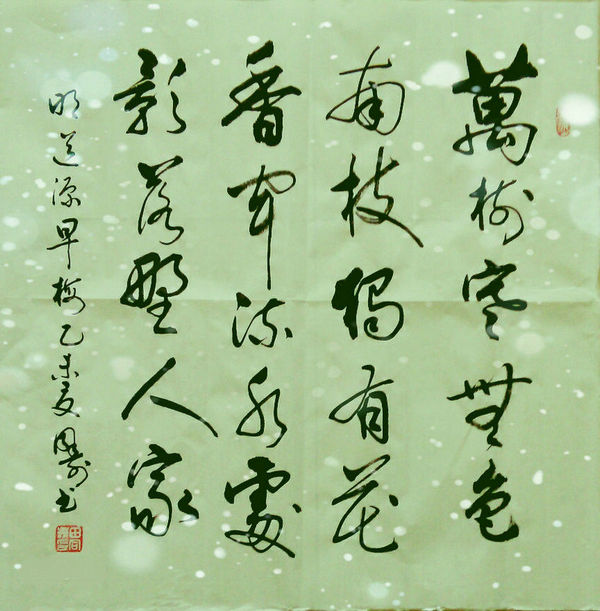 萬樹寒無色
南枝獨有花
香聞流水處
影落野人家
明道源早梅乙未夏
書